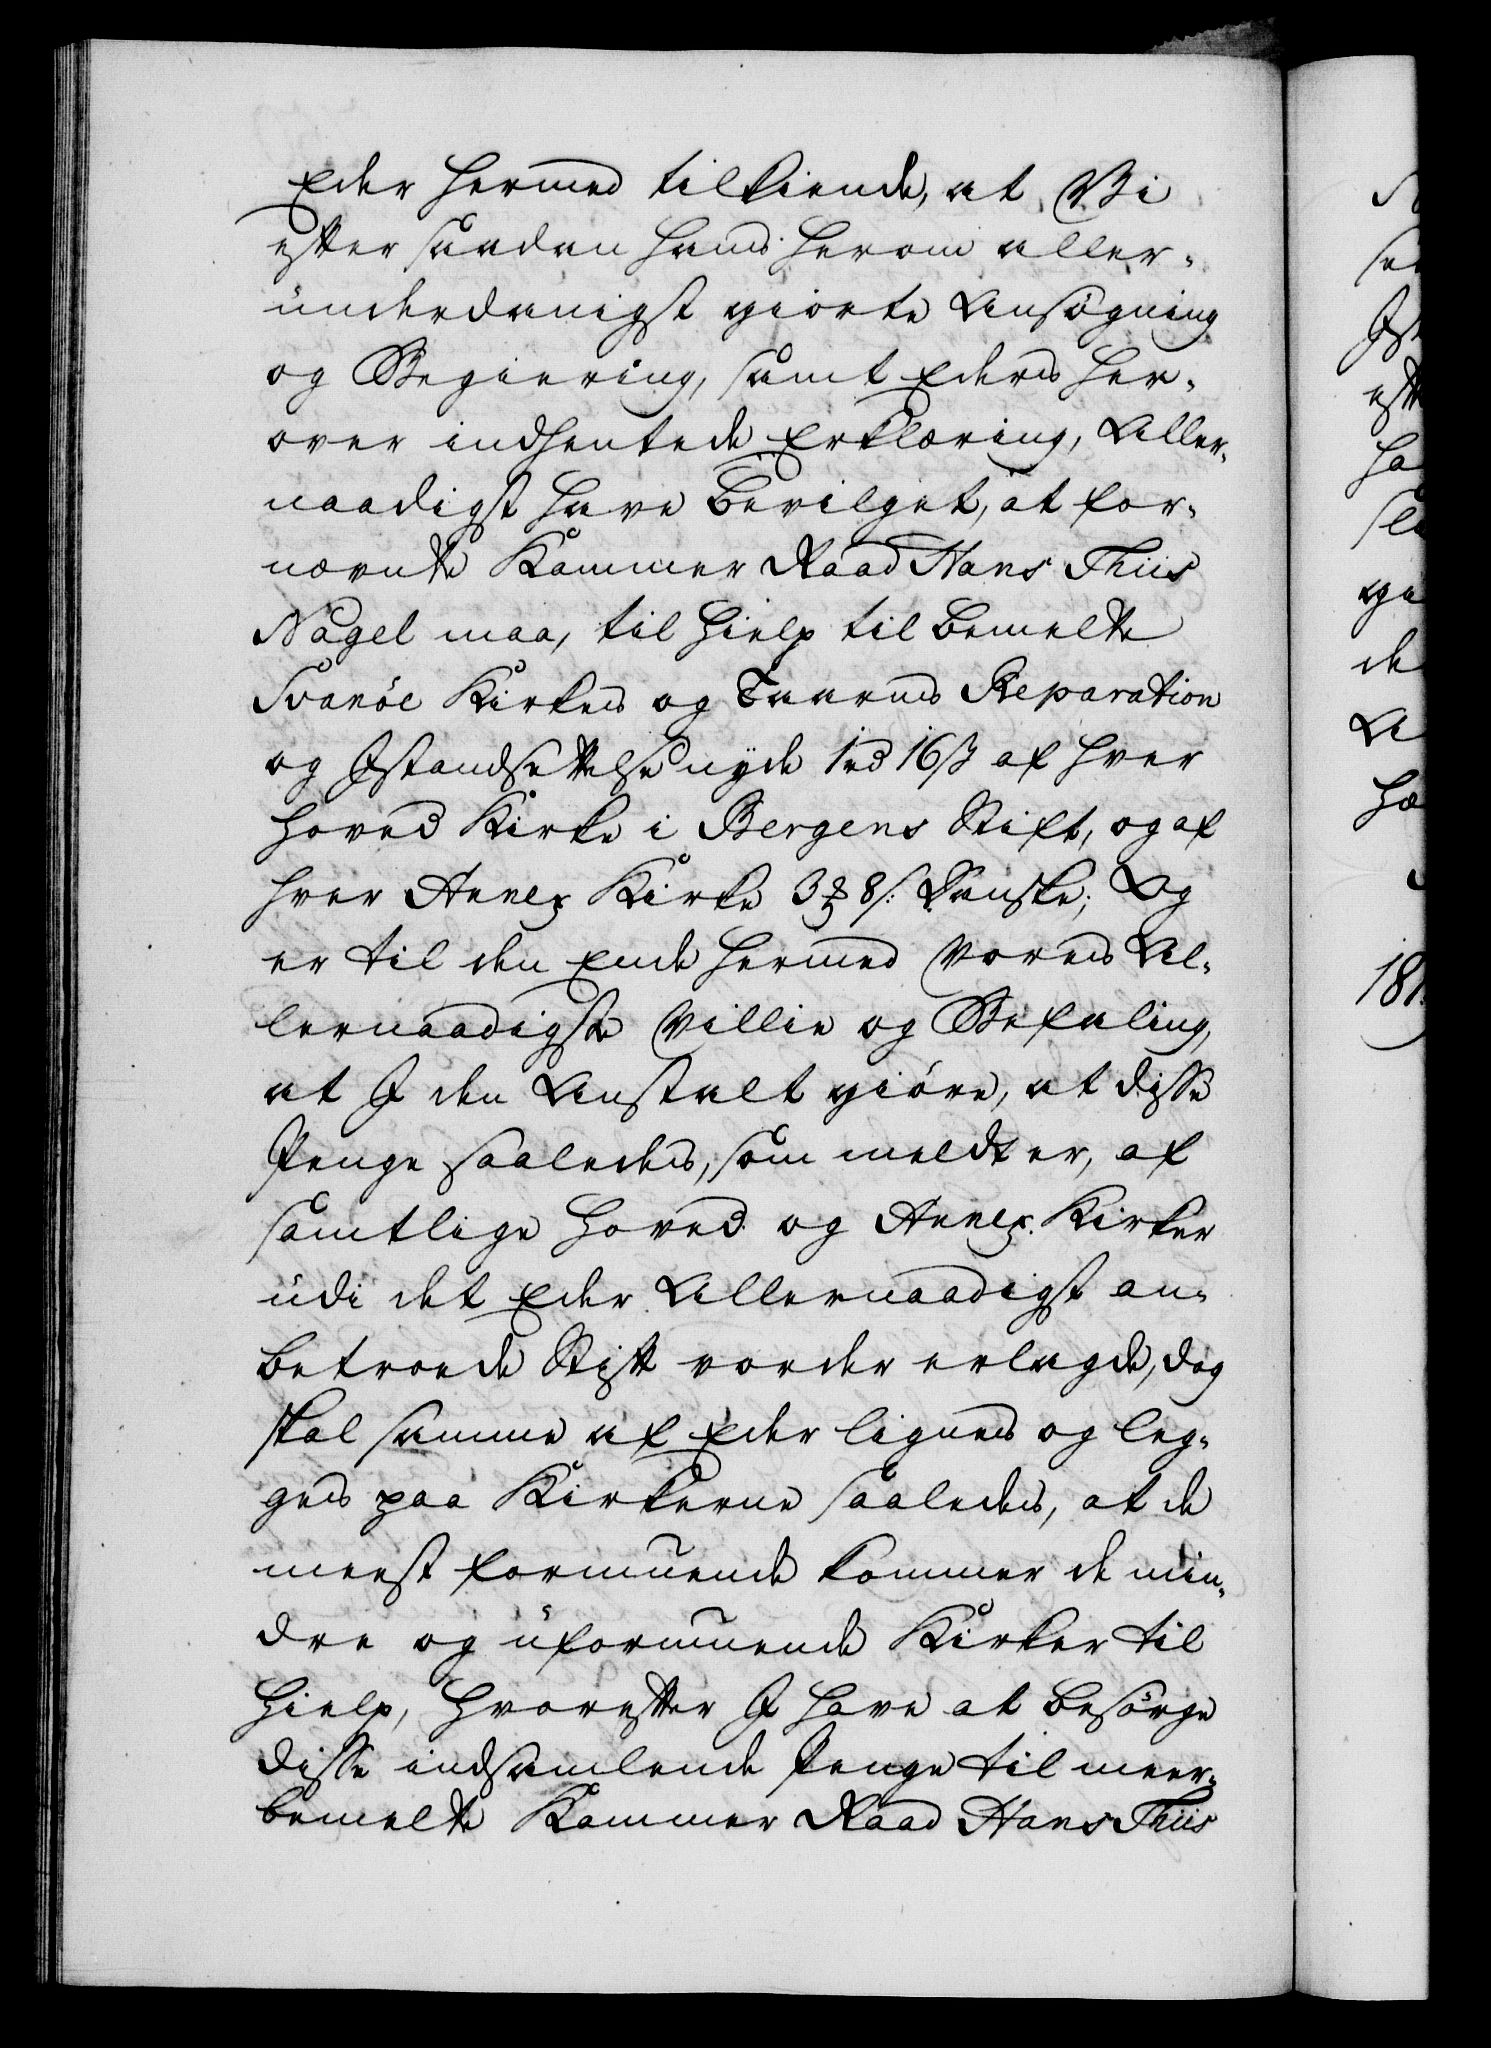 Eder hermed tilkiende, at Vi
efter saadan hans herom aller-
underdanigst giorte Ansøgning
og Begiering, samt Eders her-
over indhentede Erklæring, Aller-
naadigst have bevilget, at for-
nævnte Kammer Raad Hans Thiis
Nagel maa, til Hielp til bemelte
Svanöe Kirkes og Taarns Reparation
og Istandsættelse nyde 1 rd 16 ß af hver
Hoved Kirke i Bergens Stift, og af
hver Annex Kirke 3 ₰ 8 ß: Danske; Og
er til den Ende hermed Vores Al-
lernaadigste Villie og Befaling,
at I den Anstalt giöre, at disse
Penge saaledes, som meldt er, af
samtlige Hoved og Annex Kirker
udi det Eder Allernaadigst an-
betroede Stift vorder erlagde, dog
skal samme af Eder lignes og leg-
ges paa Kirkerne saaledes, at de
meest formuende kommer de min-
dre og uformuende Kirker til
Hielp, hvorefter I have at besörge
disse indsamlende Penge til meer-
bemelte Kammer Raad Hans Thiis
181.